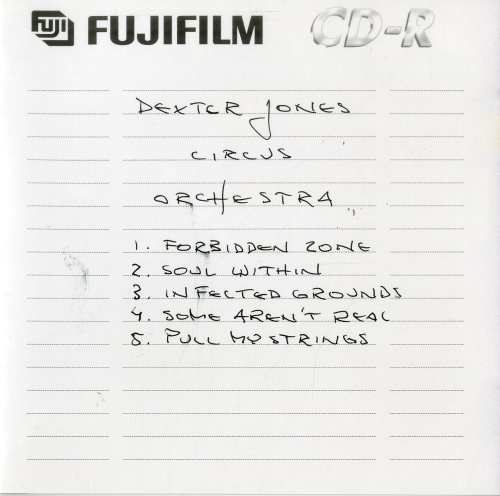 FUJI FUJIFILM CD-R
DEXTER JONES
CIRCUS
ORCHESTRA
1. FORBIDDEN ZONE
2. SOUL WITHIN
3. INFECTED GROUNDS
4. SOME AREN'T REAL
5. PULL MY STRINGS